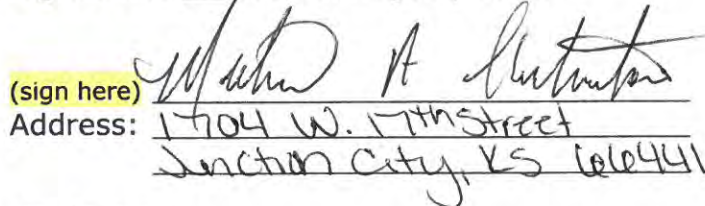 (sign here)
Address: 1704 W. 17th Street
Junction City, KS 66441